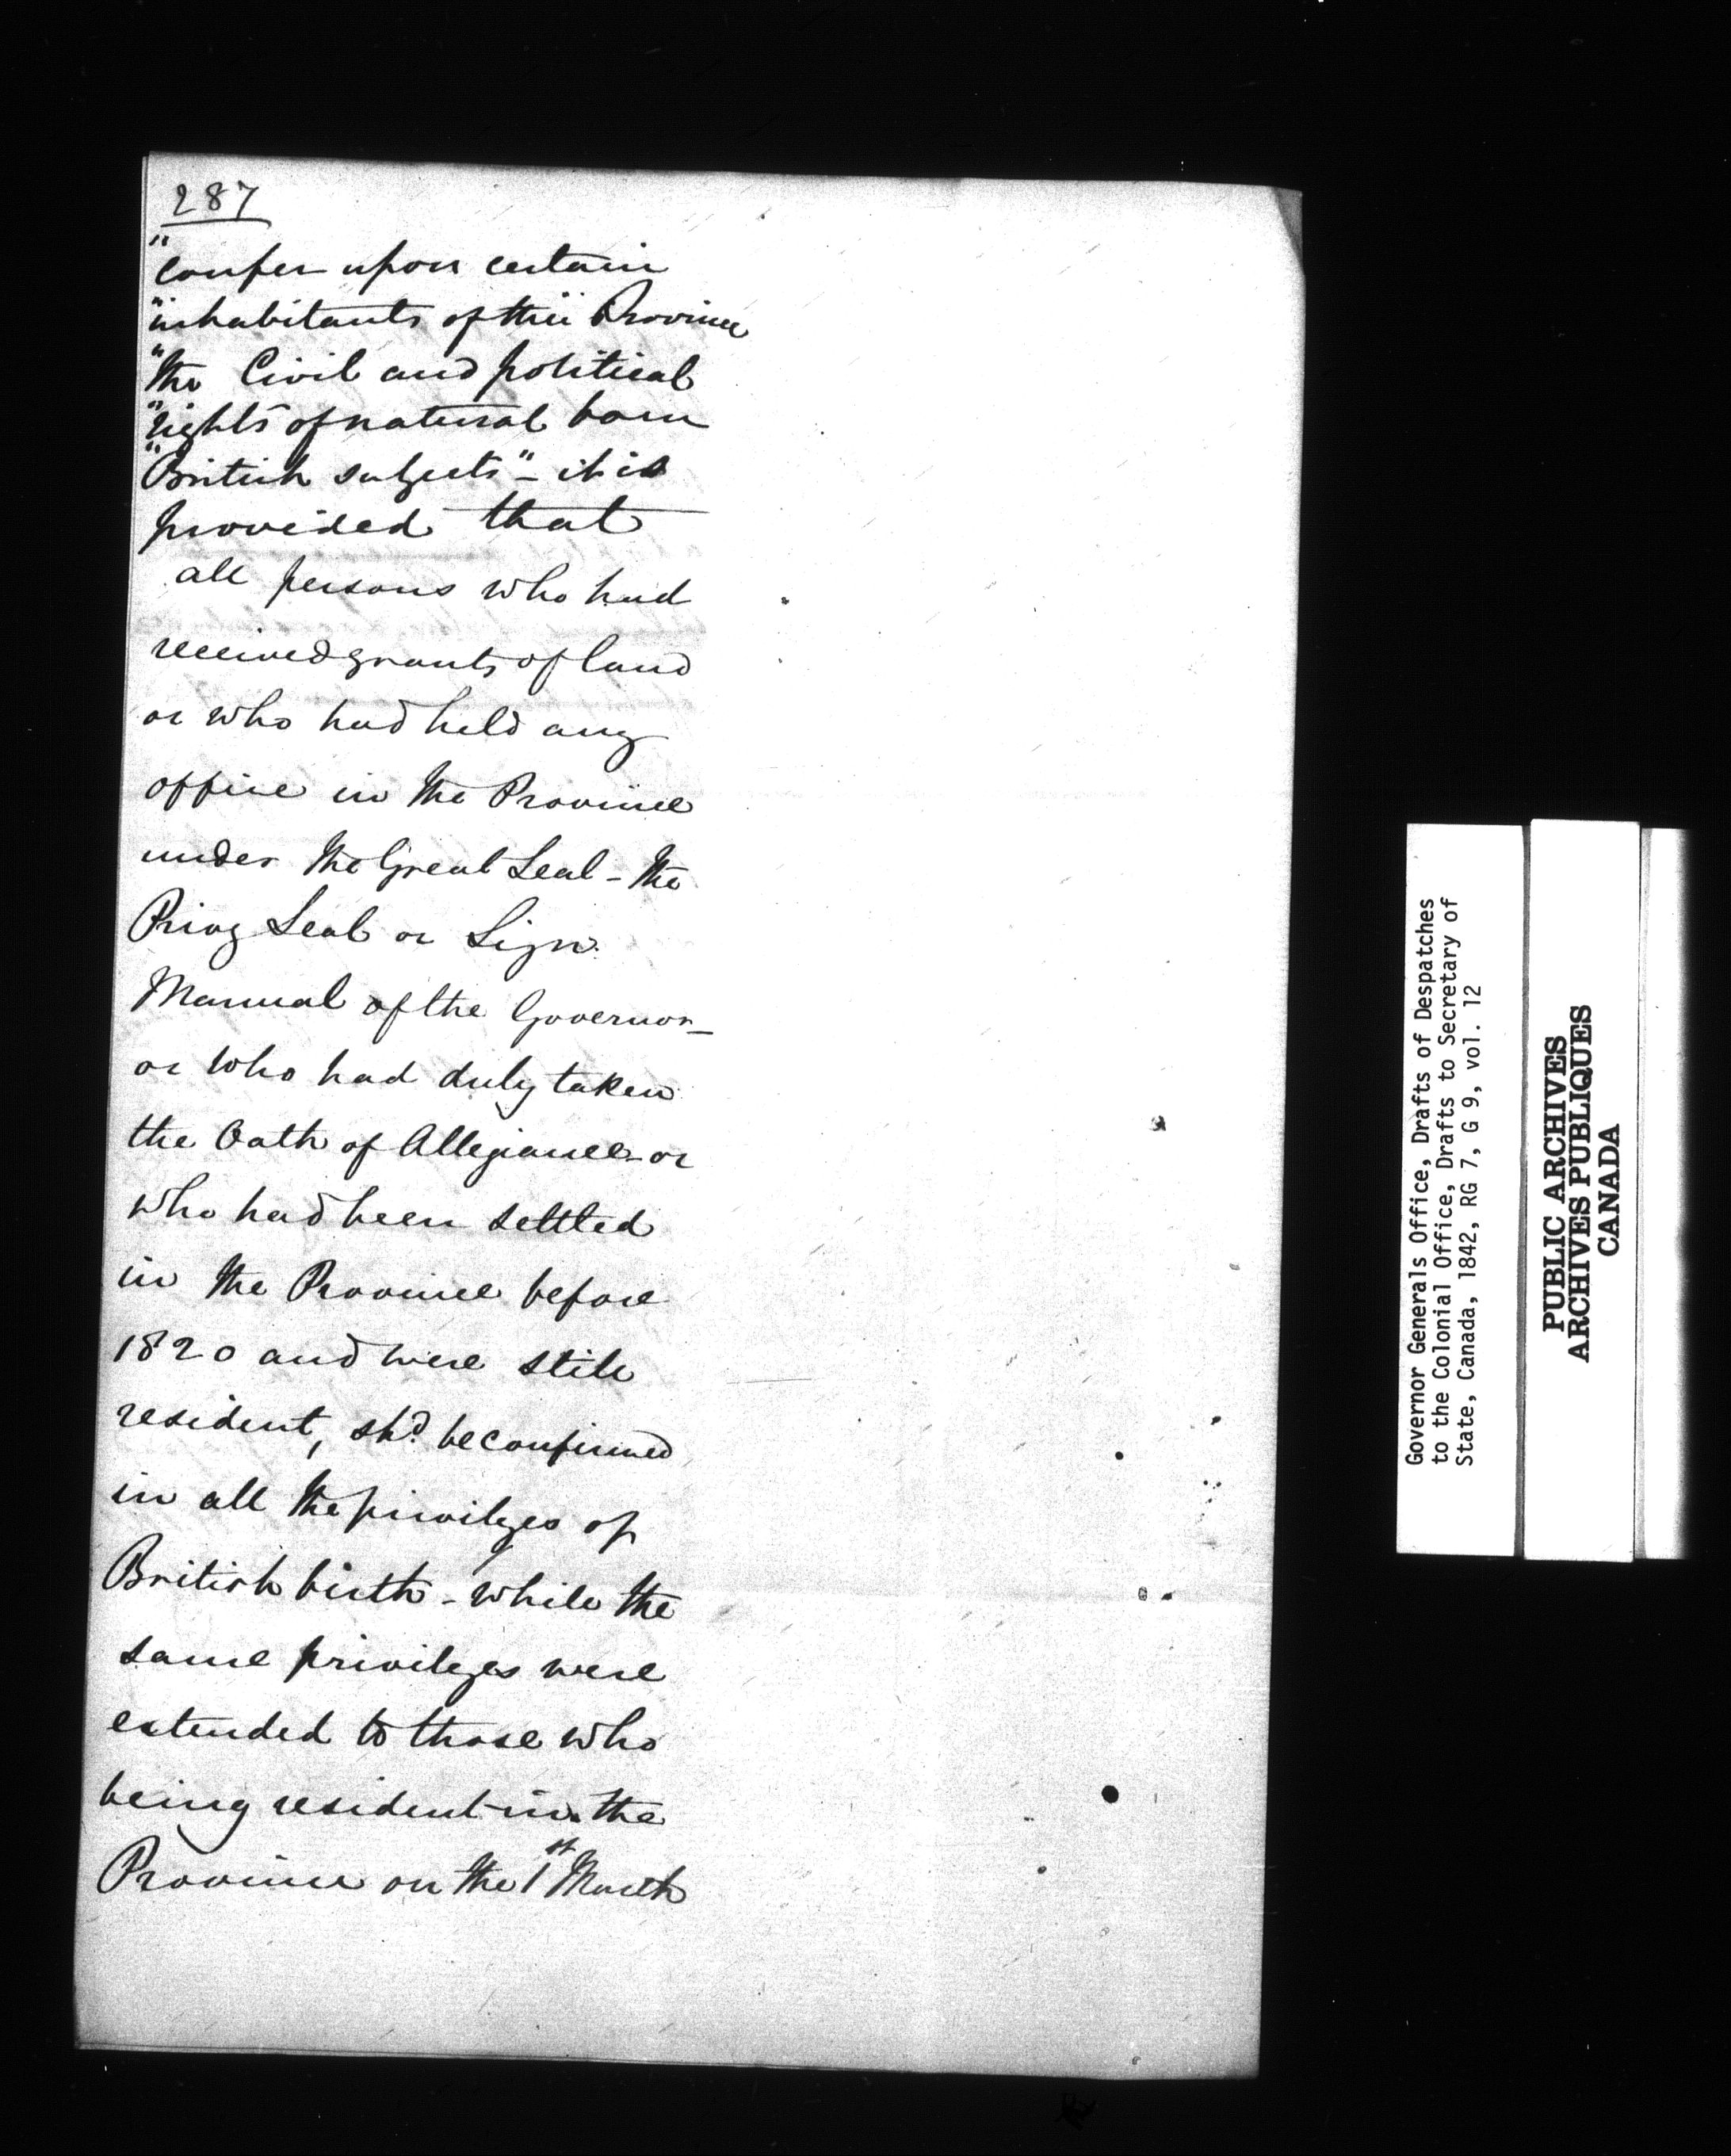 287
"confer upon certain
"inhabitants of this Province
"the Civil and political
"rights of natural born
"British subjects" - it is
provided that
all persons who had
received grants of land
or who had held any
office in the Province
under the Great Seal - the
Privy Seal or Sign
Manual of the Governor -
or who had duly taken
the Oath of Allegiance - or
who had been settled
in the Province before
1820 and were still
resident, shd. be confirmed
in all the privileges of
British birth - while the
same privileges were
extended to those who
being resident in the
Province on the 1st March
Governor Generals Office, Drafts of Despatches
to the Colonial Office, Drafts to Secretary of
State, Canada, 1842, RG 7, G 9, vol. 12
PUBLIC ARCHIVES
ARCHIVES PUBLIQUES
CANADA